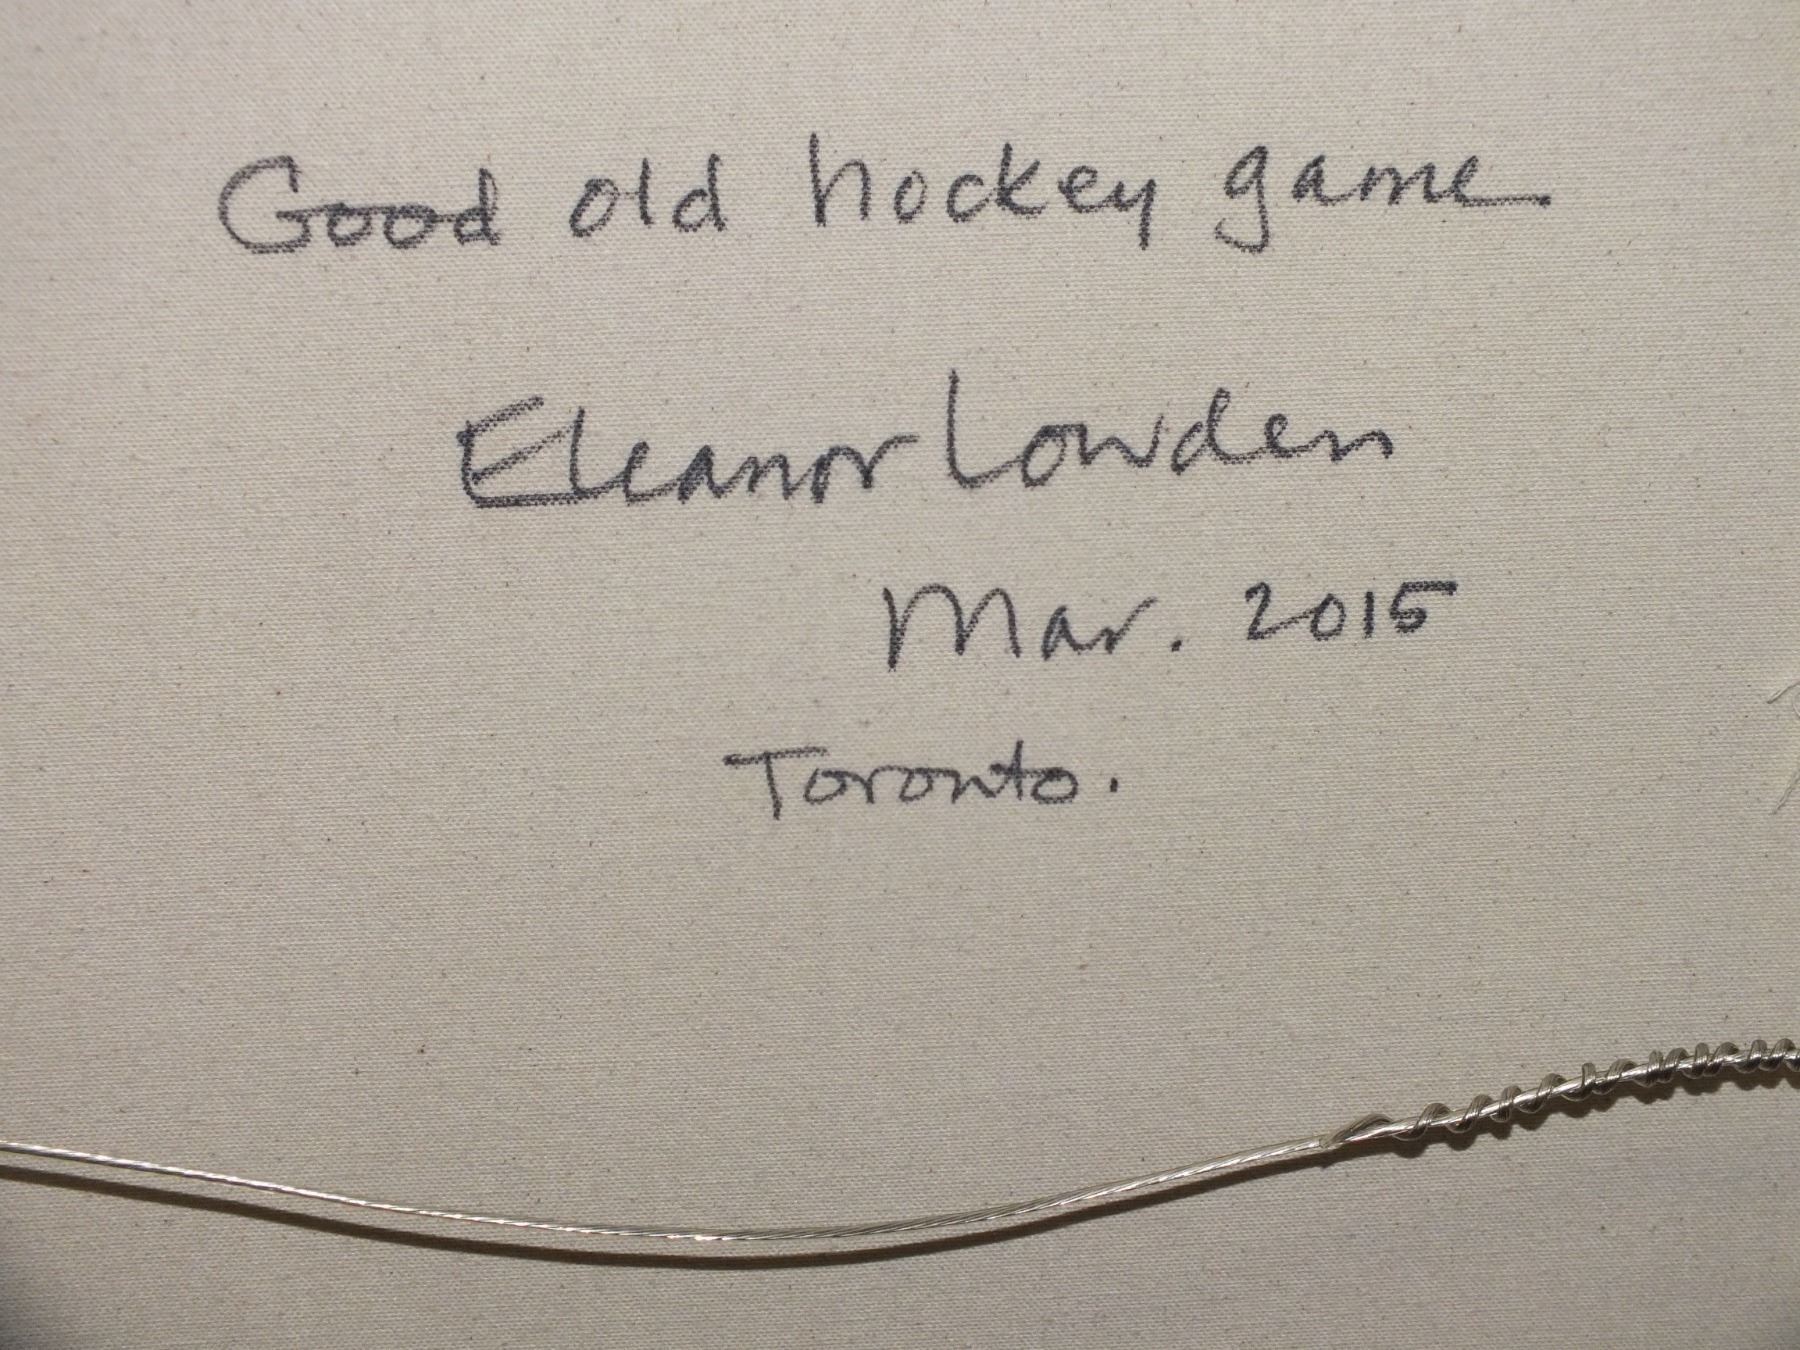 Good old hockey game
Eleanor Lowden
Mar. 2015
Toronto.